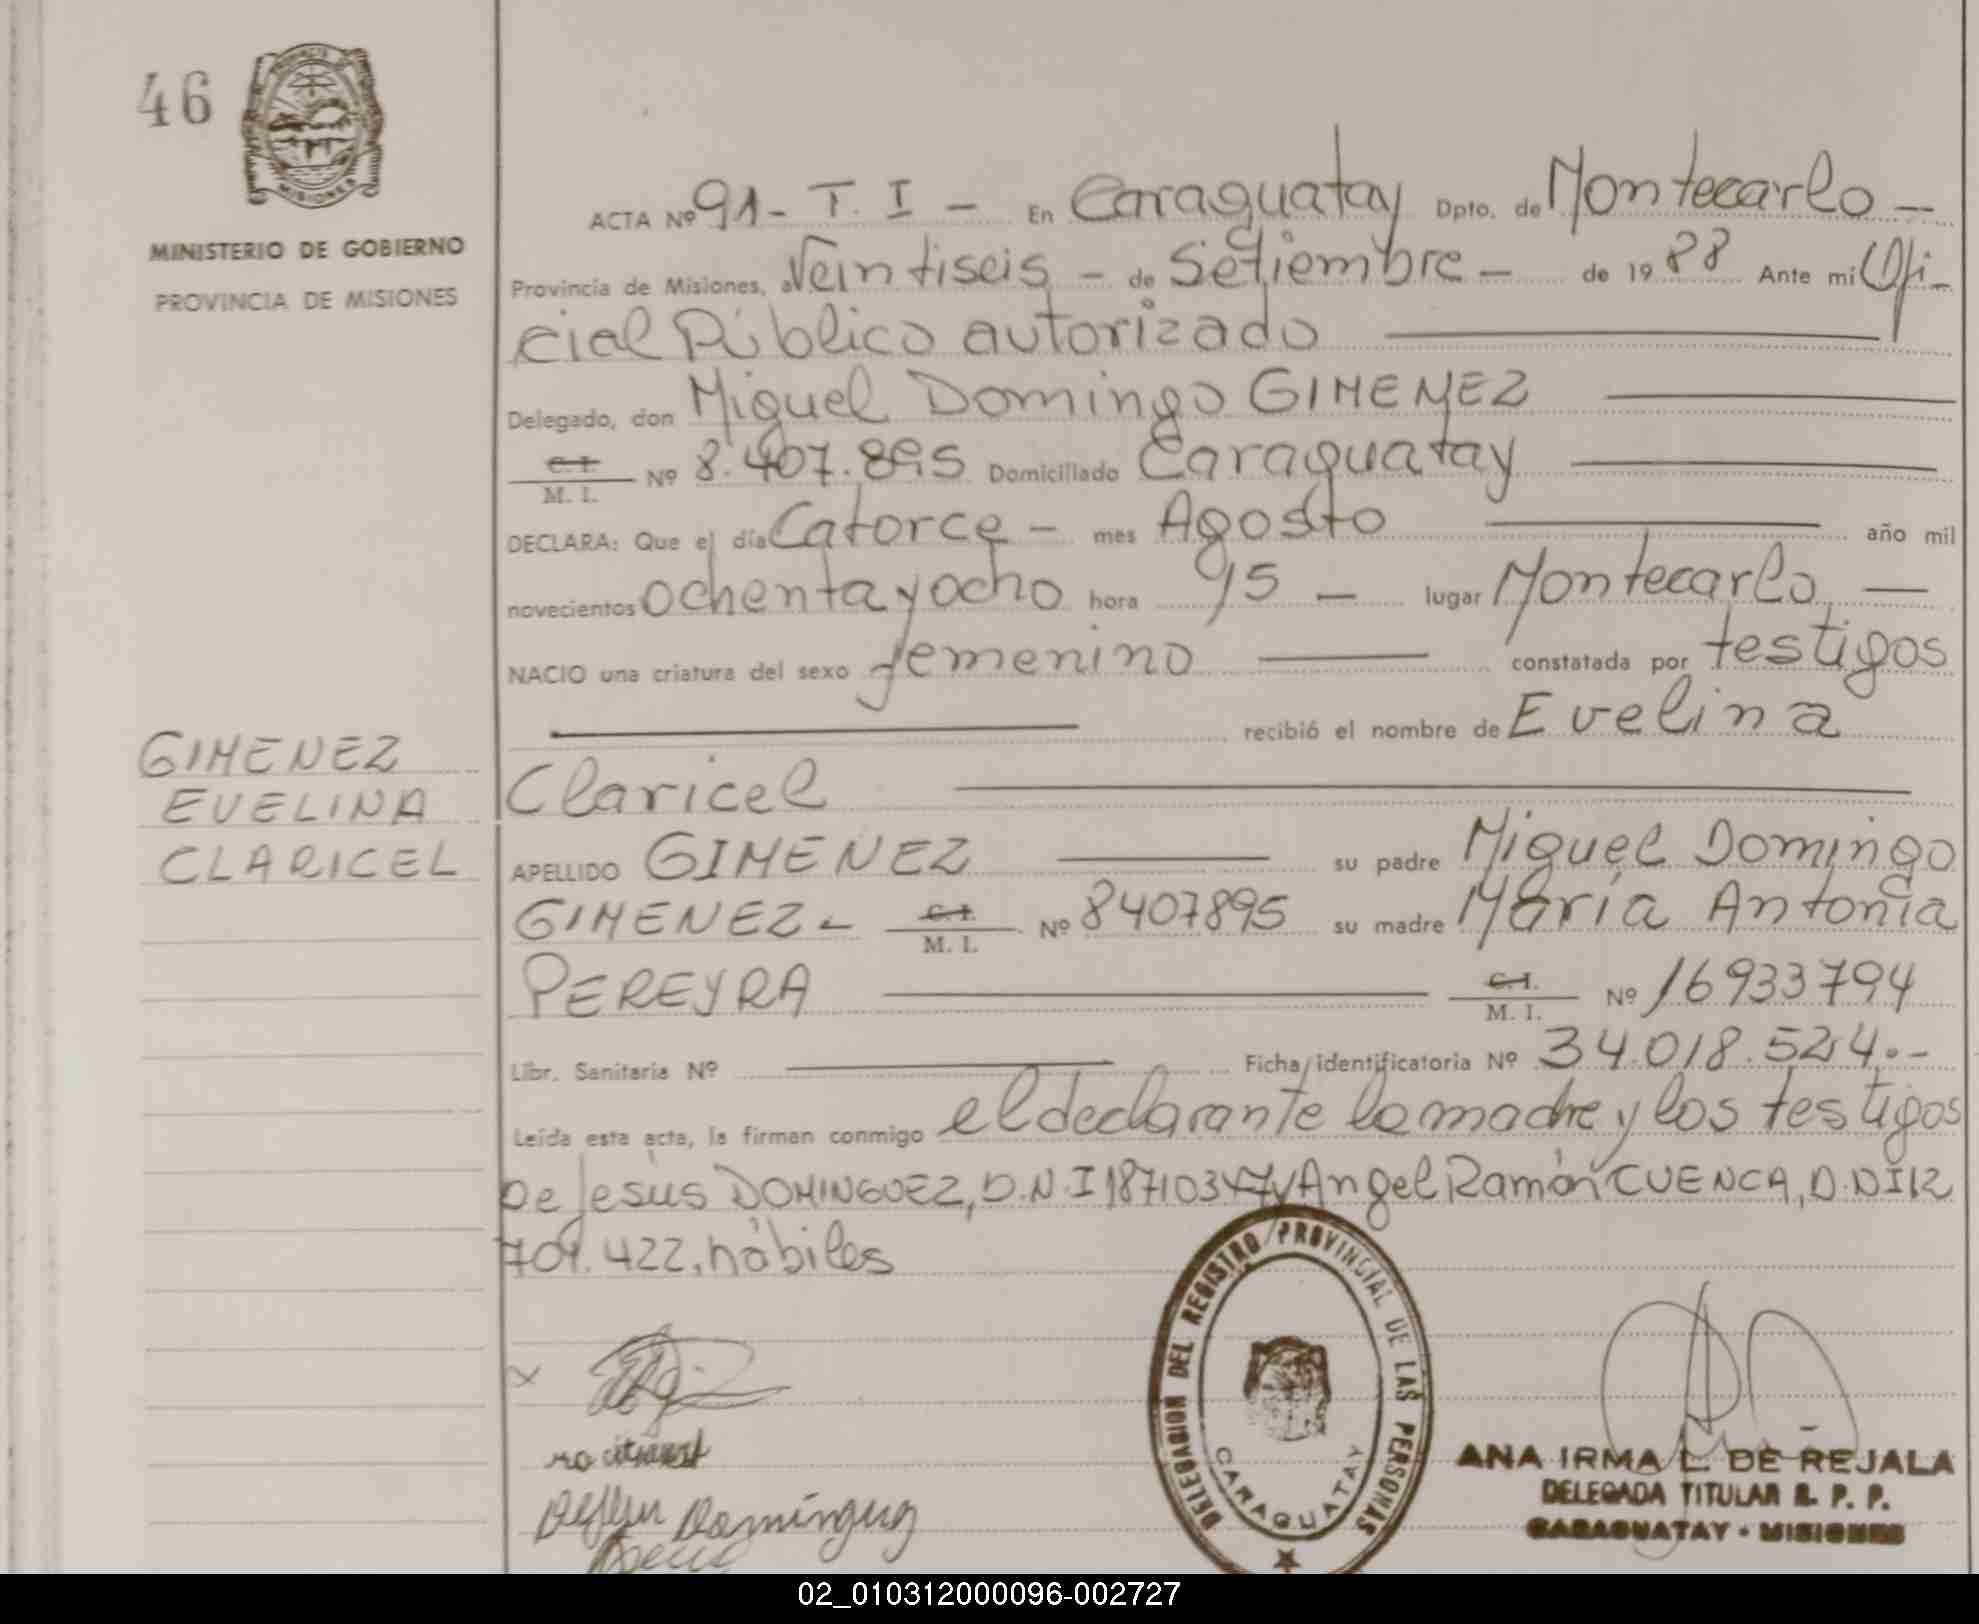 46
PROVINCIA DE
MISIONES
MINISTERIO DE GOBIERNO
PROVINCIA DE MISIONES
ACTA Nº 91 - T. I - En Caraguatay Dpto. de Montecarlo -
Provincia de Misiones, a Veintiseis - de Setiembre - de 1988 Ante mi Ofi-
cial Público autorizado
Delegado, don Miguel Domingo GIMENEZ
C. I.
M. I. Nº 8.407.895 Domiciliado Caraguatay
DECLARA: Que el día Catorce - mes Agosto año mil
novecientos ochenta y ocho hora 15 - lugar Montecarlo, -
NACIO una criatura del sexo femenino constatada por testigos
recibió el nombre de Evelina
Claricel
GIMENEZ
EVELINA
CLARICEL
APELLIDO GIMENEZ su padre Miguel Domingo
GIMENEZ - C. I. M. I. Nº 8407895 su madre María Antonia
PEREYRA C. I. M. I. Nº 16933794
Libr. Sanitaria Nº Ficha identificatoria Nº 34.018.524.-
Leída esta acta, la firman conmigo el declarante la madre y los testigos
De Jesús DOMINGUEZ, D.N.I y Angel Ramón CUENCA, D.N.I 12
701.422, hábiles
Dominguez
DELEGACION DEL REGISTRO PROVINCIAL DE LAS PERSONAS
CARAGUATAY
ANA IRMA L. DE REJALA
DELEGADA TITULAR R. P. P.
CARAGUATAY - MISIONES
02_010312000096-002727